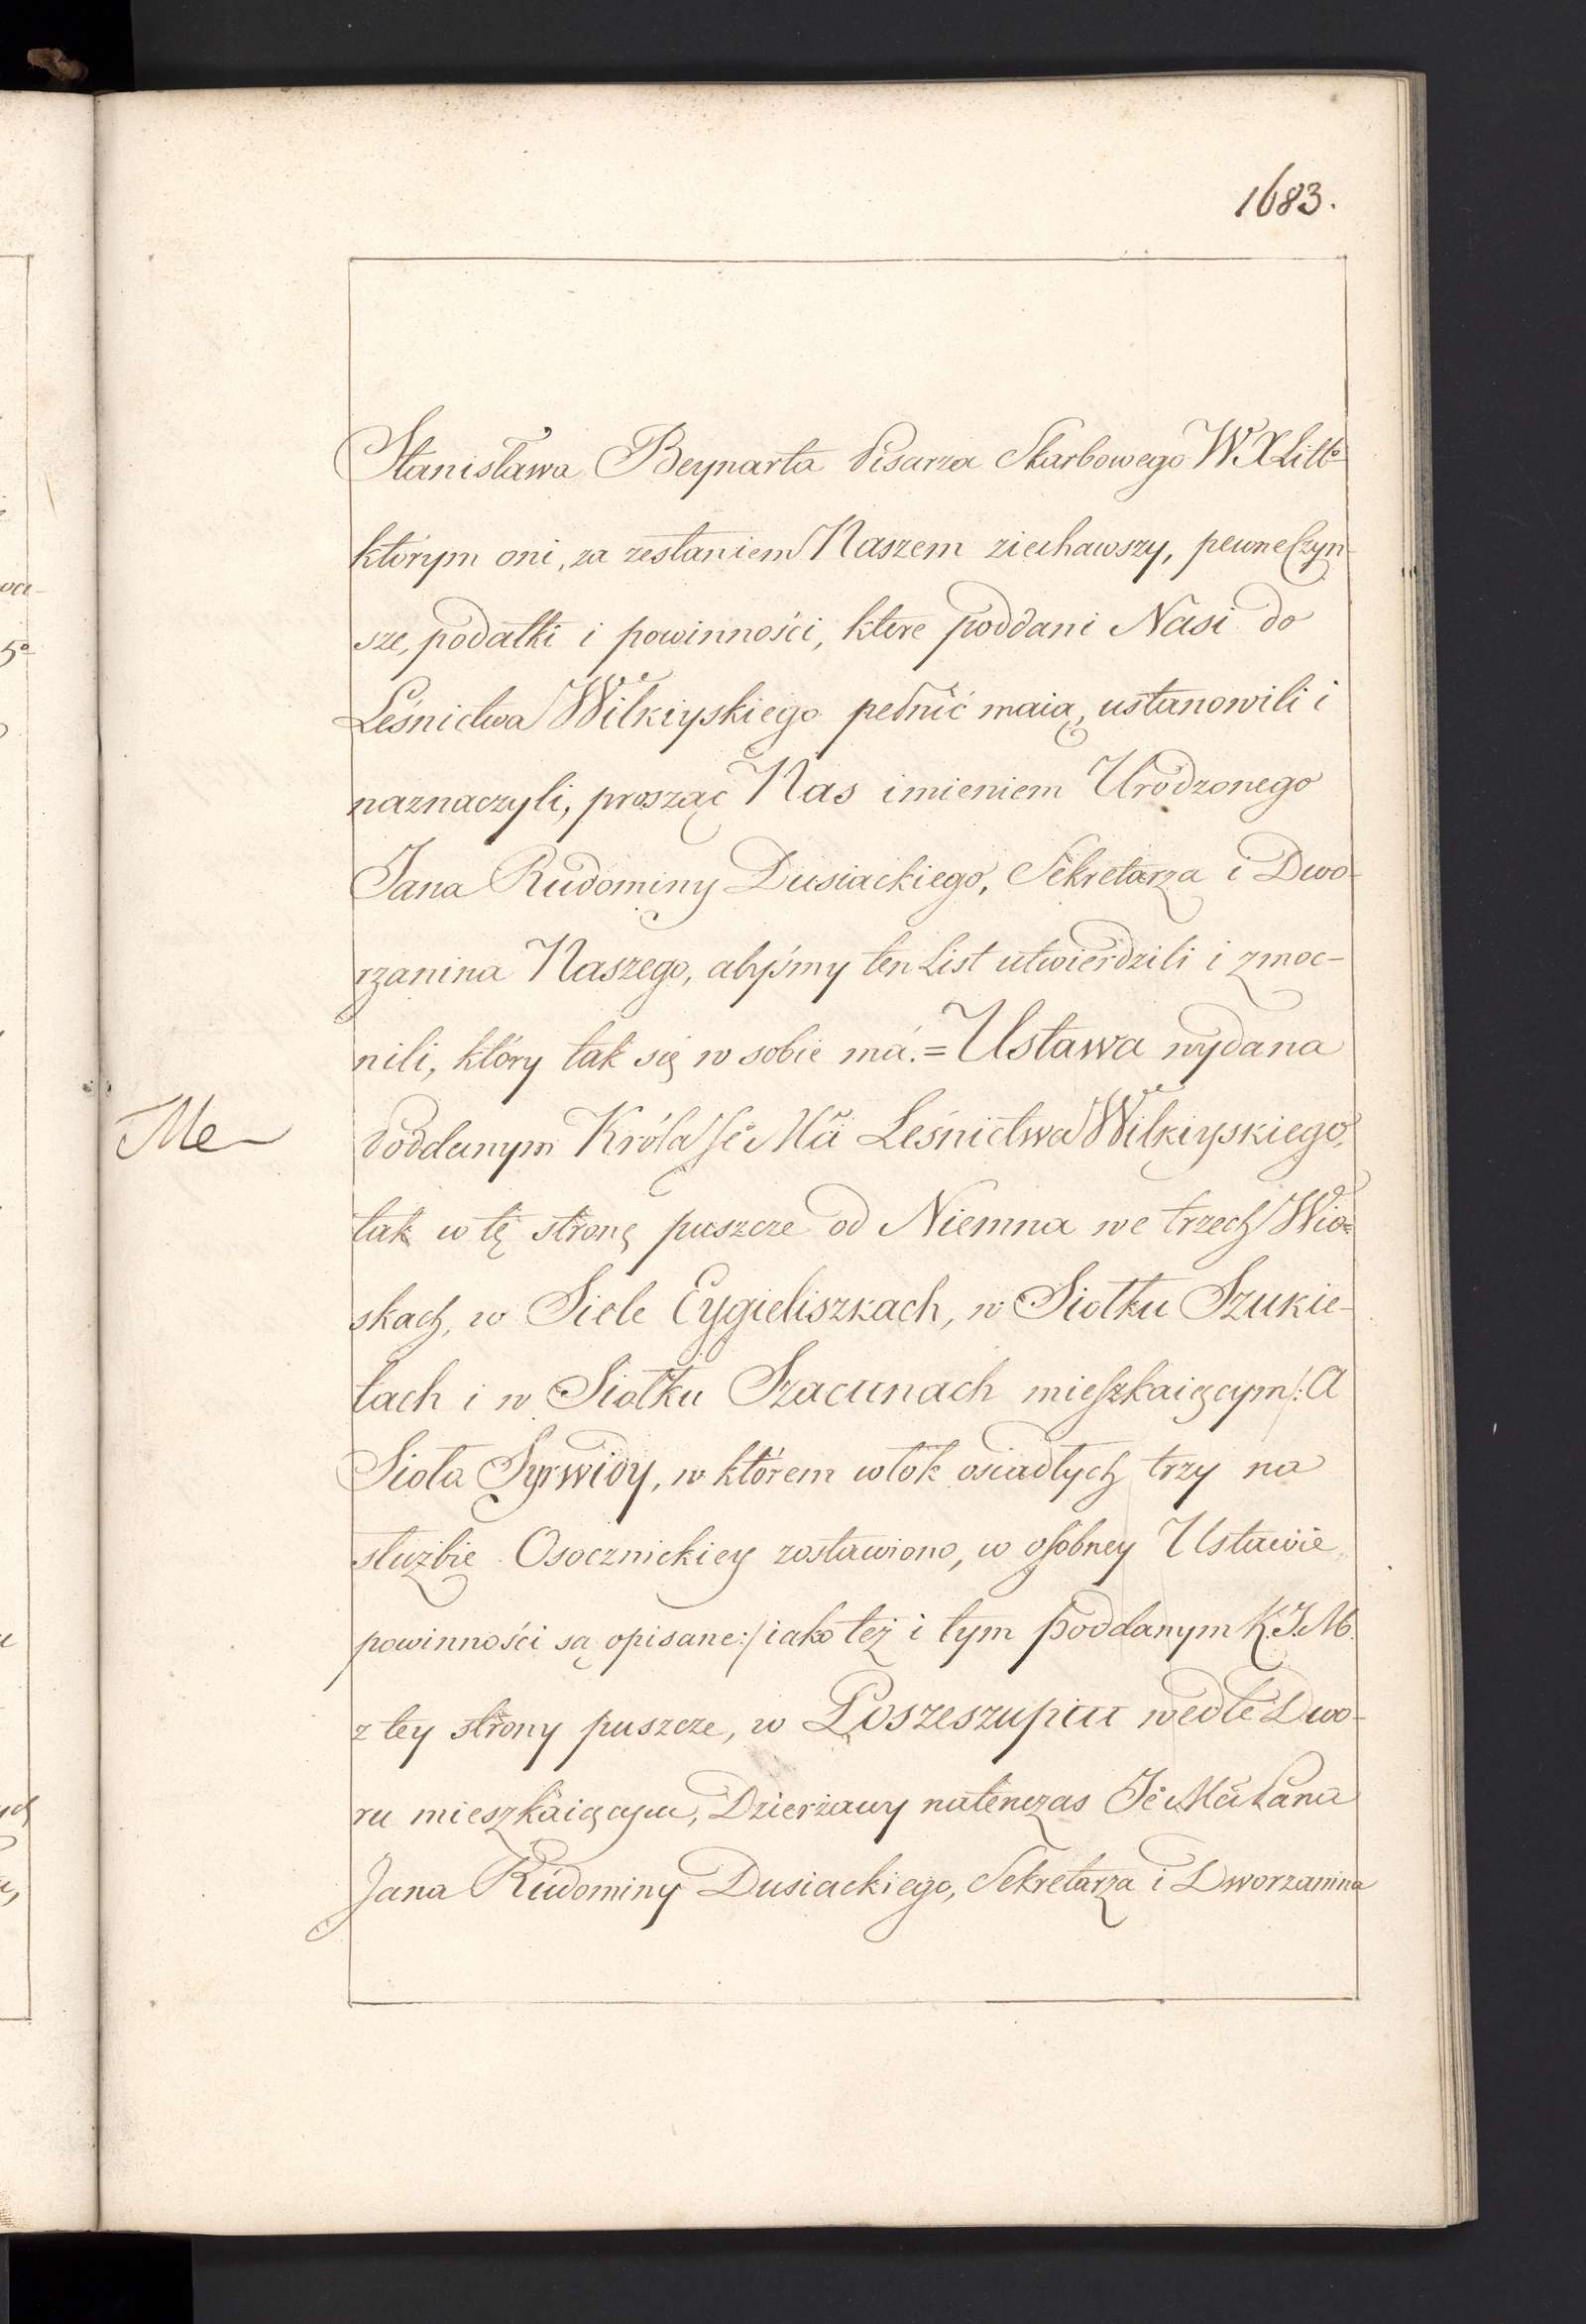 1683.
Stanisława Beynarta Pisarza Skarbowego W.X.Litto
którym oni, za zesłaniem Naszem ziechawszy, pewne Czyn-
sze, podatki i powinności, które poddani Nasi do
Leśnictwa Wilkiyskiego pełnić maią, ustanowili i
naznaczyli, prosząc Nas imieniem Urodzonego
Jana Rudominy Dusiackiego, Sekretarza i Dwo-
rzanina Naszego, abyśmy ten List utwierdzili i zmoc-
nili, który tak się w sobie ma. = Ustawa wydana
Me
Poddanym Króla Je Mci Leśnictwa Wilkiyskiego,
tak w tę stronę puszcze od Niemna we trzech Wio-
skach, w Siele Eygieliszkach, w Siołku Szukie-
tach i w Siołku Szacunach mieszkaiącym /: A
Sioła Syrwidy, w którem włok osiadłych trzy na
służbie Osocznickiey zostawiono, w osobney Ustawie
powinności są opisane :/ iako też i tym poddanym K.J.M.
z tey strony puszcze, w Poszeszupiu wedle Dwo-
ru mieszkaiącym, Dzierżawy natenczas Je Mci Pana
Jana Rudominy Dusiackiego, Sekretarza i Dworzanina